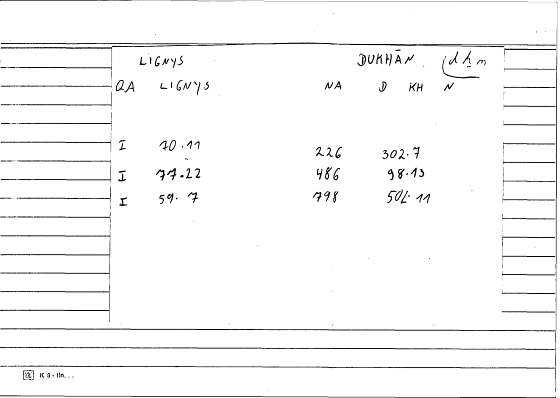 LIGNYS DUKHĀN (d ḫ n
QA LIGNYS NA D KH N
I 70.11 226 302.7
I 77.22 486 98.13
I 59.7 798 502.11
K 5 - lin...